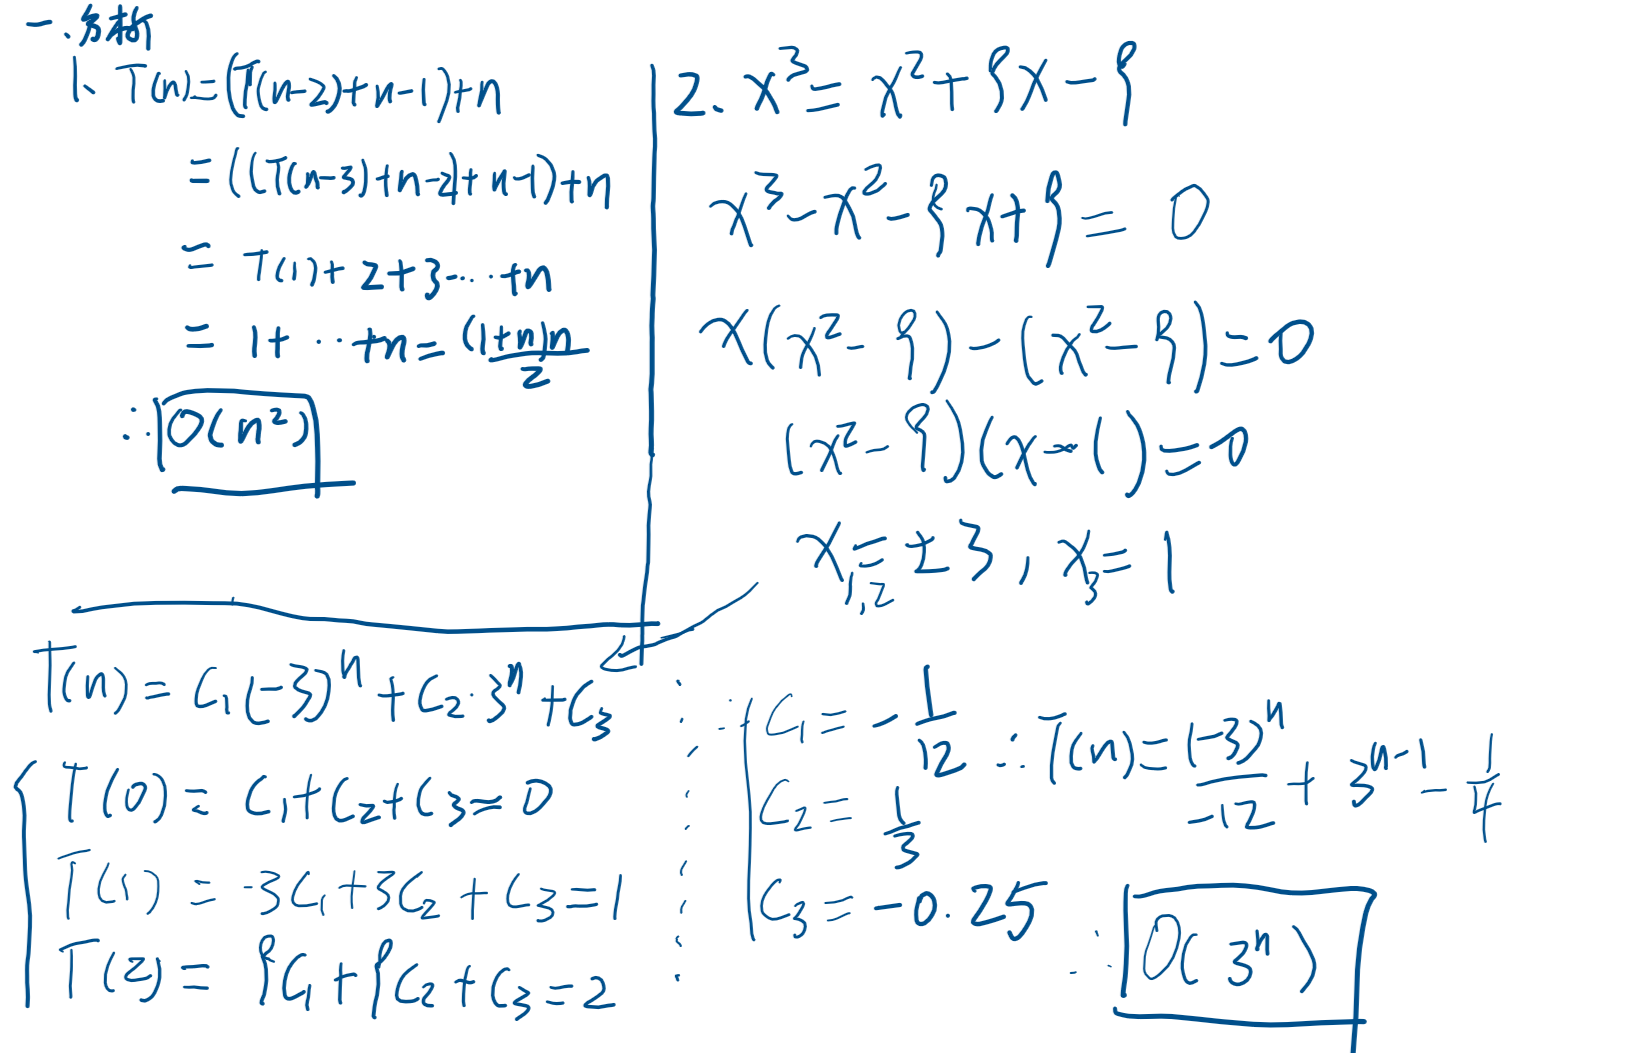 一.分析
1、T(n)=(T(n-2)+n-1)+n
=((T(n-3)+n-2)+n-1)+n
= T(1)+2+3-···+n
= 1+ ··+n=(1+n)n/2
∴ O(n²)
2. x³= x²+9x-9
x³-x²-9x+9= 0
x(x²-9)-(x²-9)=0
(x²-9)(x-1)=0
x₁,₂=±3, x₃=1
T(n)= C₁(-3)ⁿ+C₂·3ⁿ+C₃
T(0)= C₁+C₂+C₃=0
T(1)= -3C₁+3C₂+C₃=1
T(2)= 9C₁+9C₂+C₃=2
C₁= -1/12
C₂= 1/3
C₃= -0.25
∴T(n)=(-3)ⁿ/-12 + 3ⁿ⁻¹ - 1/4
∴ O(3ⁿ)